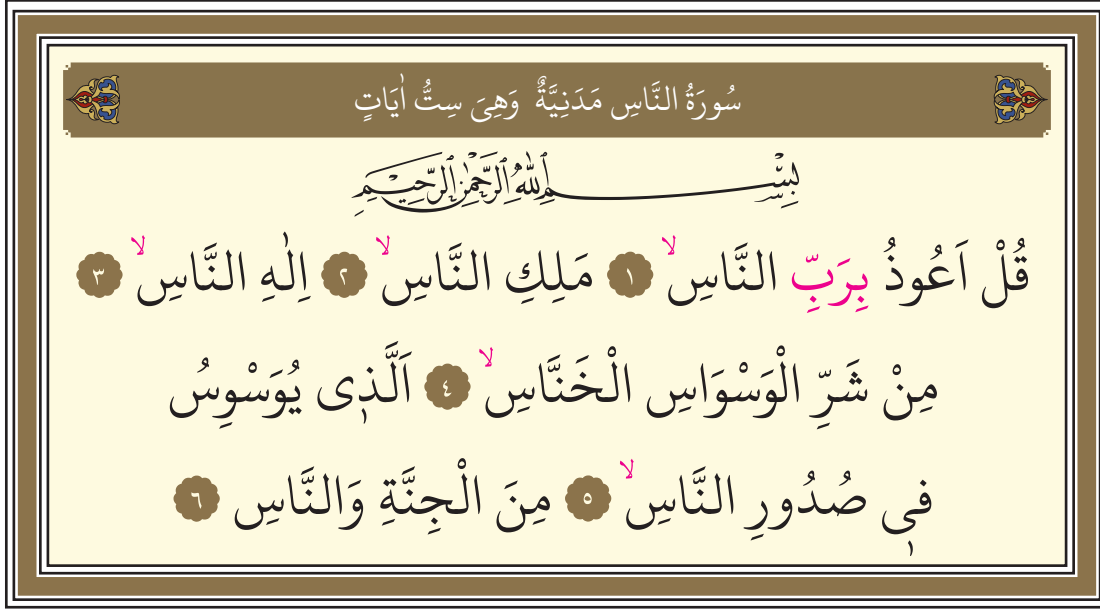 سُورَةُ النَّاسِ مَدَنِيَّةٌ وَهِىَ سِتُّ اٰيَاتٍ
بِسْــــــــمِ اللّٰهِ الرَّحْمٰنِ الرَّحِيــمِ
قُلْ اَعُوذُ بِرَبِّ النَّاسِۙ ١ مَلِكِ النَّاسِۙ ٢ اِلٰهِ النَّاسِۙ ٣
مِنْ شَرِّ الْوَسْوَاسِ الْخَنَّاسِۙ ٤ اَلَّذٖى يُوَسْوِسُ
فٖى صُدُورِ النَّاسِۙ ٥ مِنَ الْجِنَّةِ وَالنَّاسِ ٦